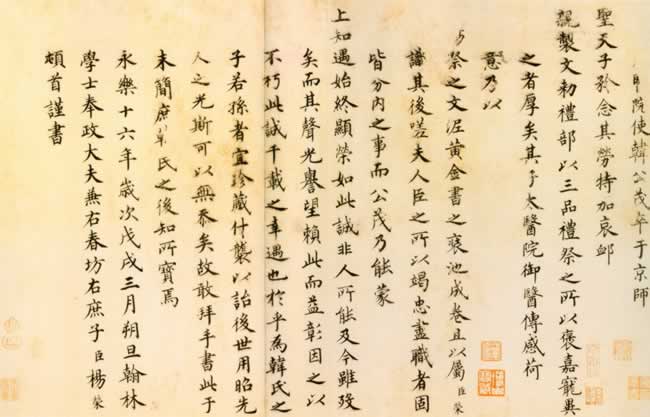 院使韓公茂卒于京師
聖天子矜念其勞特加哀卹
親製文勅禮部以三品禮祭之所以褒嘉寵異
之者厚矣其子太醫院御醫傳感荷
意乃以
祭之文泥黃金書之裒池成卷且以屬臣榮
識其後嗟夫人臣之所以竭忠盡職者固
皆分內之事而公茂乃能蒙
上知遇始終顯榮如此誠非人所能及今雖歿
矣而其聲光譽望賴此而益彰因之以
不朽此誠千載之幸遇也於乎為韓氏之
子若孫者宜珍藏什襲以詒後世用昭先
人之光斯可以無忝矣故敢拜手書此于
末簡庶氏之後知所寶焉
永樂十六年歲次戊戌三月朔旦翰林
學士奉政大夫兼右春坊右庶子臣楊榮
頓首謹書